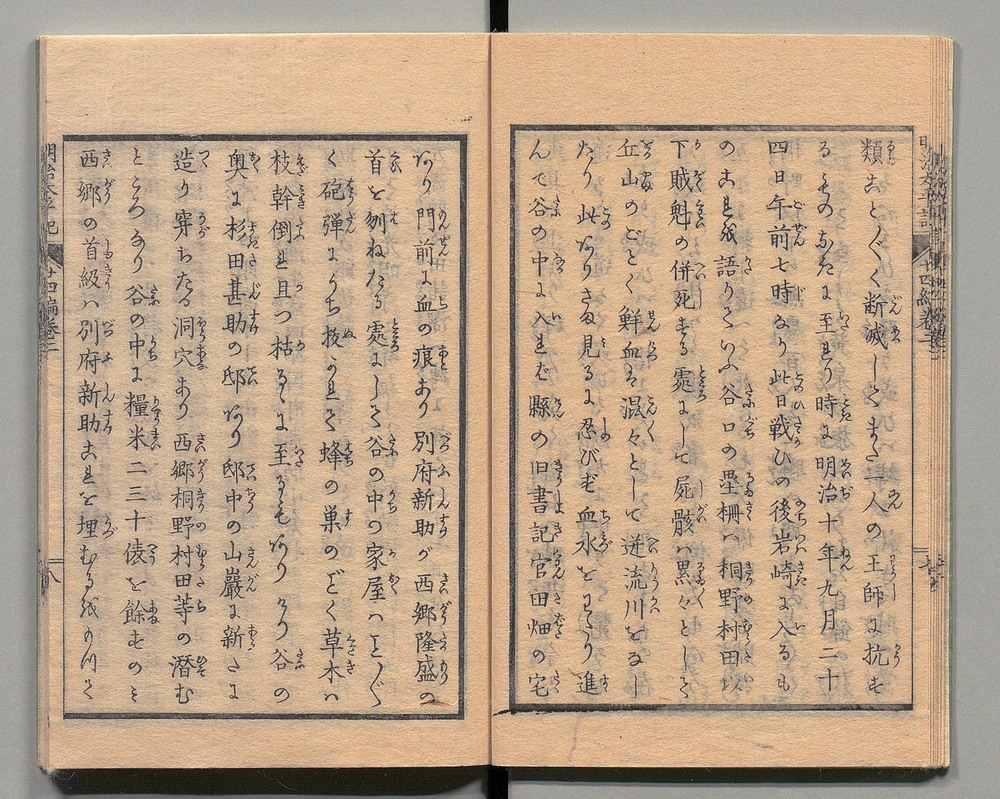 類ことごとく断滅してまた一人の王師に抗も
るものなきに至れり時は明治十年九月二十
四日午前七時なり此日戦ひの後岩崎に入るも
のこれを語りていふ谷口の塁柵ハ桐野村田以
下賊魁の併死する處にして屍骸ハ累々として
丘山のごとく鮮血ハ混々として迸流川をなし
たり此ありさま見るに忍びず血水をわたり進
んで谷の中に入れば縣の旧書記官田畑の宅
あり門前に血の痕あり別府新助が西郷隆盛の
首を刎ねたる處にして谷の中の家屋ハことごと
く砲弾にうち抜かれて蜂の巣のごとく草木ハ
枝幹倒れ且つ枯るゝに至るものあり
谷の
奥に杉田甚助の邸あり邸中の山巖に新たに
造り穿ちたる洞穴あり西郷桐野村田等の潜む
ところなり谷の中に糧米二三十俵を餘すのミ
西郷の首級ハ別府新助これを埋むる
明治太平記
十四編巻二
八